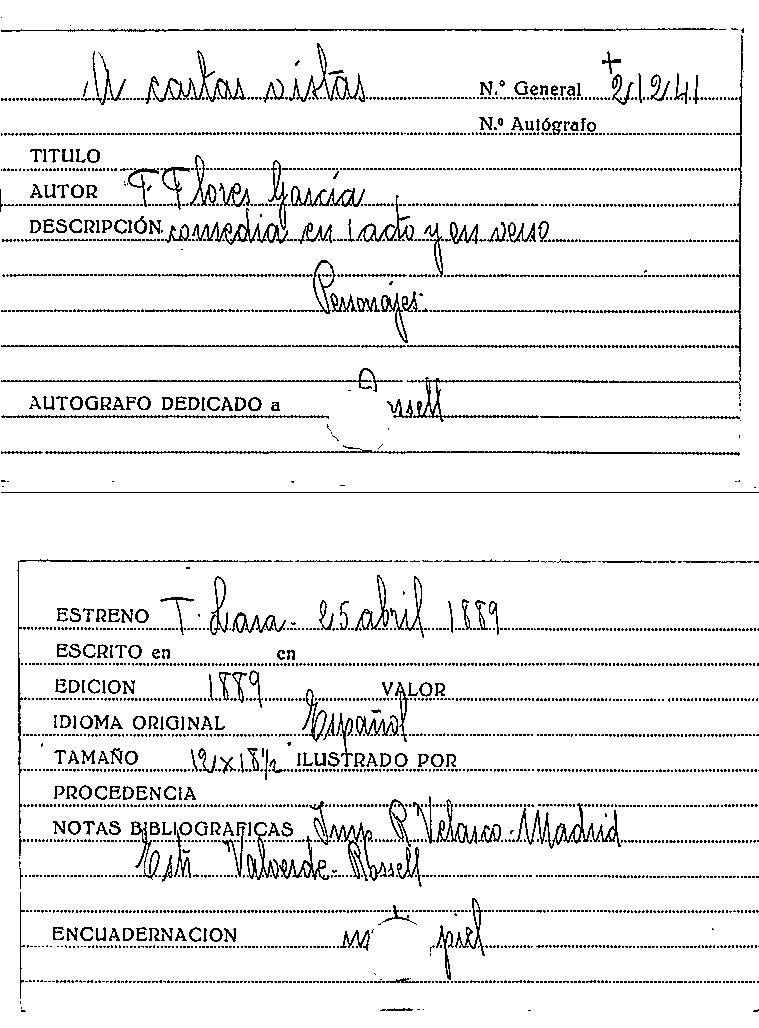 A cartas vistas
N.º General +21241
N.º Autógrafo
TITULO
AUTOR F. Flores García
DESCRIPCIÓN comedia en 1 acto y en verso
Personajes:
AUTOGRAFO DEDICADO a
ESTRENO T. Lara - 25 abril 1889
ESCRITO en en
EDICION 1889 VALOR
IDIOMA ORIGINAL Español
TAMAÑO 12 x 18 1/2 ILUSTRADO POR
PROCEDENCIA
NOTAS BIBLIOGRAFICAS Imp. R. Velasco - Madrid
Estr. Valverde - Rossell
ENCUADERNACION piel